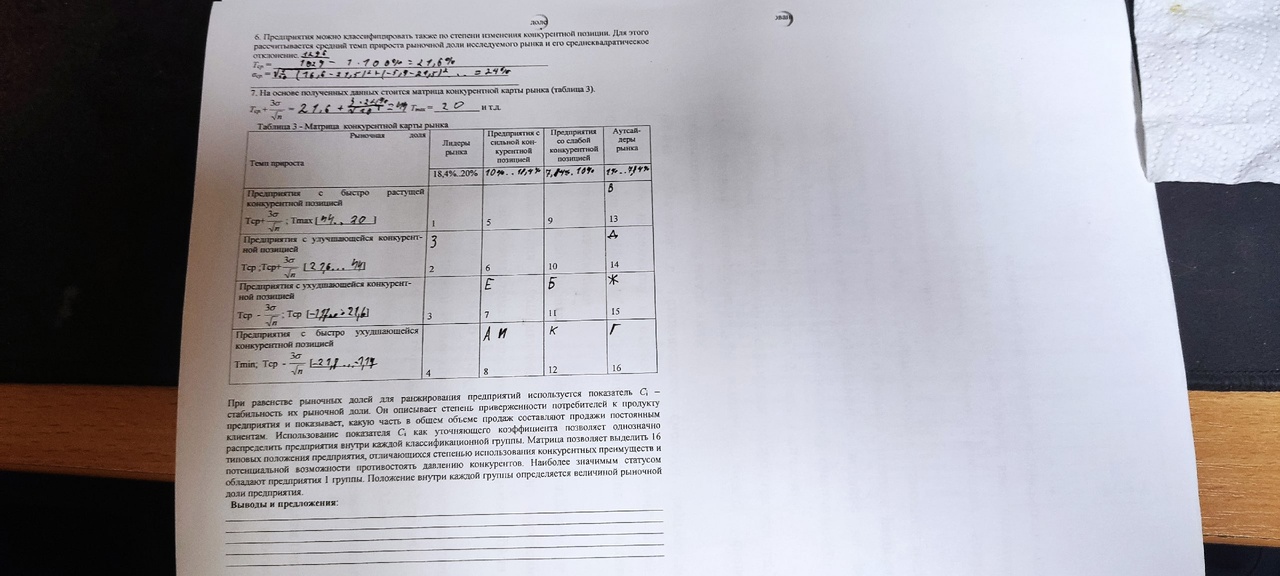 6. Предприятия можно классифицировать также по степени изменения конкурентной позиции. Для этого
рассчитывается средний темп прироста рыночной доли исследуемого рынка и его среднеквадратическое
отклонение.
Tср = - 1 · 100% = 21,6%
= 24%
7. На основе полученных данных стоится матрица конкурентной карты рынка (таблица 3).
Tср+ 3σ/√n = 21,6 + Tmax= 20 и т.д.
Таблица 3 - Матрица конкурентной карты рынка
Рыночная доля
Темп прироста
Лидеры рынка
Предприятия с сильной кон-курентной позицией
Предприятия со слабой конкурентной позицией
Аутсай-деры рынка
18,4%..20%
Предприятия с быстро растущей
конкурентной позицией
Tср+ 3σ/√n ; Tmax
1
5
9
В
13
Предприятия с улучшающейся конкурент-
ной позицией
Tср ;Tср+ 3σ/√n
З
2
6
10
Д
14
Предприятия с ухудшающейся конкурент-
ной позицией
Tср - 3σ/√n ; Tср
3
Е
7
Б
11
Ж
15
Предприятия с быстро ухудшающейся
конкурентной позицией
Tmin; Tср - 3σ/√n
4
А И
8
К
12
Г
16
При равенстве рыночных долей для ранжирования предприятий используется показатель Ci –
стабильность их рыночной доли. Он описывает степень приверженности потребителей к продукту
предприятия и показывает, какую часть в общем объеме продаж составляют продажи постоянным
клиентам. Использование показателя Ci как уточняющего коэффициента позволяет однозначно
распределить предприятия внутри каждой классификационной группы. Матрица позволяет выделить 16
типовых положения предприятия, отличающихся степенью использования конкурентных преимуществ и
потенциальной возможности противостоять давлению конкурентов. Наиболее значимым статусом
обладают предприятия 1 группы. Положение внутри каждой группы определяется величиной рыночной
доли предприятия.
Выводы и предложения: